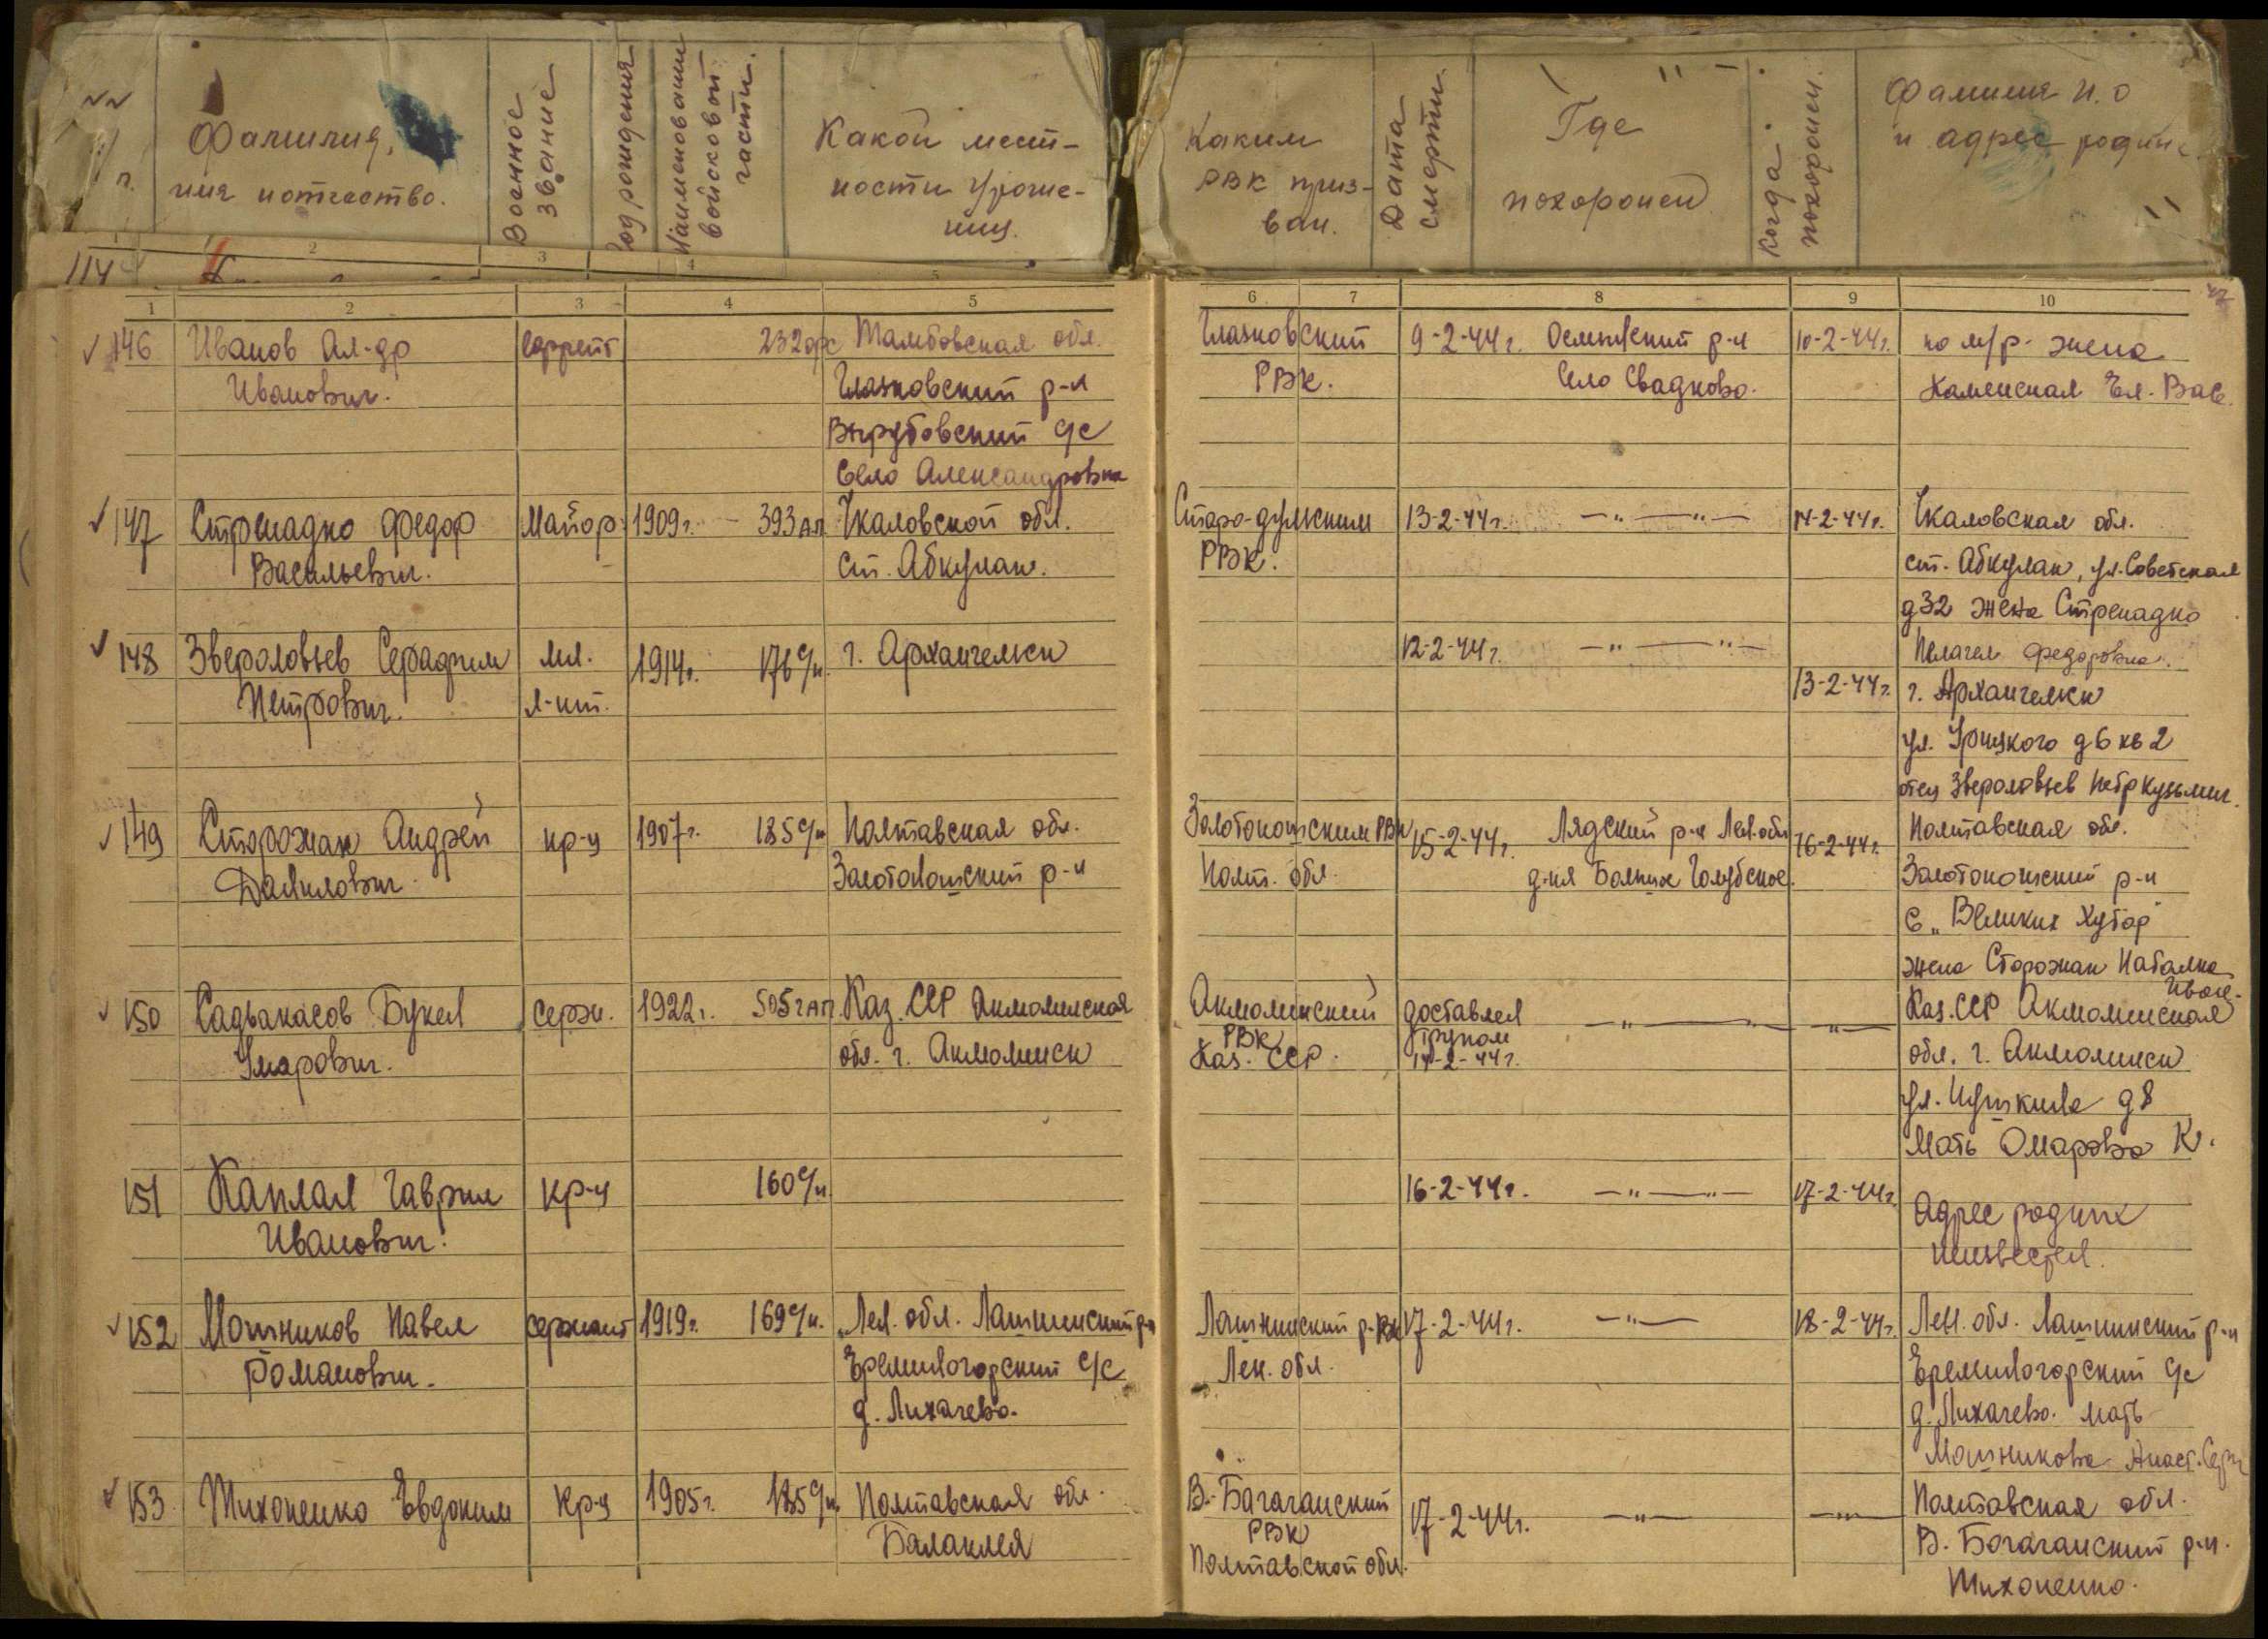 Фамилия,
имя и отчество.
Военное
звание
Год рождения
Наименовани
войсковой
части.
Какой мест-
ности уроже-
нец.
Каким
РВК приз-
ван.
Дата
смерти.
Где
похоронен
Когда
похоронен.
Фамилия И.О
и адрес родных
114
2
3
4
5
1 2 3 4 5 6 7 8 9 10
146 Иванов Ал-др ефрейт 232 Тамбовская обл. Глазковский 9-2-44 г. Осьминский р-н 10-2-44 г. по м/р- жена
Иванович. Глазковский р-н РВК. Село Свадково. Каменская Ел. Вас.
Вырубовский с/с
Село Александровка
147 Стрепадко Федор Майор 1909 г. - 393 ап Чкаловской обл. Старо-дульским 13-2-44 г. -"-"- 14-2-44 г. Чкаловская обл.
Васильевич. ст. Абкулак. РВК. ст. Абкулак, ул. Советская
д 32 жена Стрепадко
148 Звероловьев Серафим мл. 1914 г. 176 с/п. г. Архангельск 12-2-44 г. -"-"- Пелагея Федоровна.
Петрович. л-нт. 13-2-44 г. г. Архангельск
ул. Урицкого д 6 кв 2
отец Звероловьев Петр Кузьмич.
149 Сторожан Андрей кр-ц 1907 г. 185 с/п Полтавская обл. Золотоношским РВК 15-2-44 г. Лядский р-н Лен. обл 16-2-44 г. Полтавская обл.
Данилович. Золотоношский р-н Полт. обл. д-ня Голубское. Золотоношский р-н
с "Великих Хутор"
жена Сторожан Наталка
Иван.
150 Садвакасов Букен сержн. 1922 г. 505 гап Каз. ССР Акмолинская Акмолинский доставлен -"- -"- Каз. ССР Акмолинская
Умарович. обл. г. Акмолинск РВК трупом обл. г. Акмолинск
Каз. ССР. 14-2-44 г.
ул. Пушкина д 8
Мать Омарова К.
151 Каплан Гаврил кр-ц 160 с/п 16-2-44 г. -"-"- 17-2-44 г. Адрес родных
Иванович. неизвестен.
152 Мошников Павел сержант 1919 г. 169 с/п. Лен. обл. Лашинский р-н Лашинский р-РВК 17-2-44 г. -"- 18-2-44 г. Лен. обл. Лашинский р-н
Романович. Еремиогорский с/с Лен. обл. Еремиогорский с/с
д. Лихачево. д. Лихачево. мать
Мошникова Анаст. Серг
153 Тихоненко Евдоким Кр-ц 1905 г. 185 с/п. Полтавская обл. В.-Багачанский 17-2-44 г. -"- -"- Полтавская обл.
Балаклея РВК В. Богачанский р-н.
Полтавской обл. Тихоненко.